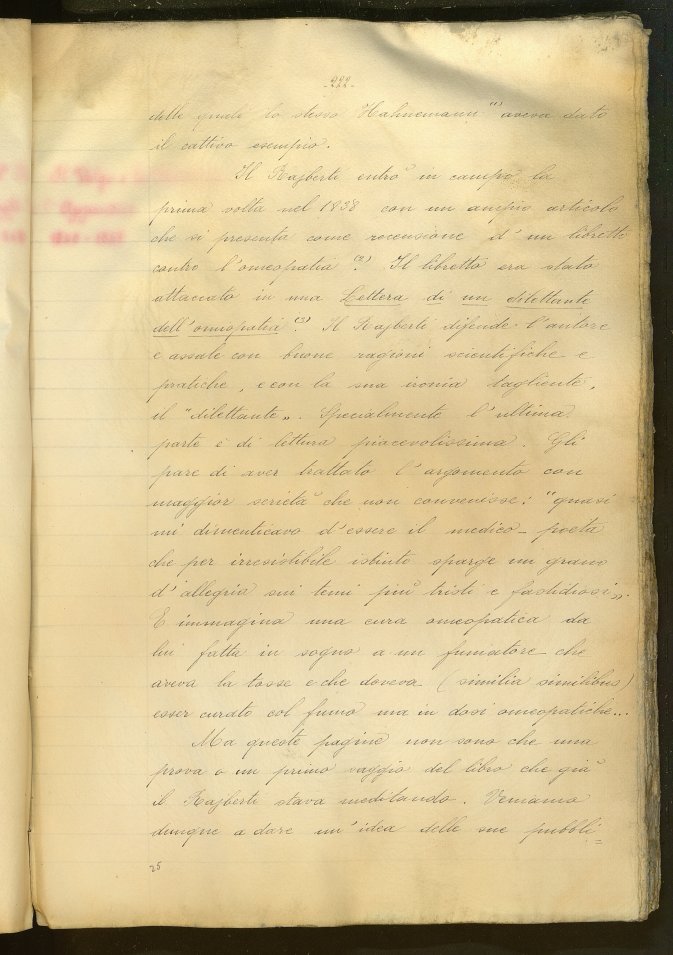 -222-
delle quali lo stesso Hahnemann (1) aveva dato
il cattivo esempio.
Il Rajberti entrò in campo la
prima volta nel 1838 con un ampio articolo
che si presenta come recensione d'un libretto
contro l'omeopatia (2). Il libretto era stato
attaccato in una Lettera di un dilettante
dell'omeopatia (3). Il Rajberti difende l'autore
e assale con buone ragioni scientifiche e
pratiche, e con la sua ironia tagliente,
il "dilettante". Specialmente l'ultima
parte è di lettura piacevolissima. Gli
pare di aver trattato l'argomento con
maggior serietà che non convenisse: "quasi
mi dimenticavo d'essere il medico-poeta
che per irresistibile istinto sparge un grano
d'allegria sui temi più tristi e fastidiosi".
E immagina una cura omeopatica da
lui fatta in sogno a un fumatore che
aveva la tosse e che doveva (similia similibus)
esser curato col fumo ma in dosi omeopatiche...
Ma queste pagine non sono che una
prova o un primo saggio del libro che già
il Rajberti stava meditando. Veniamo
dunque a dare un'idea delle sue pubbli=
25